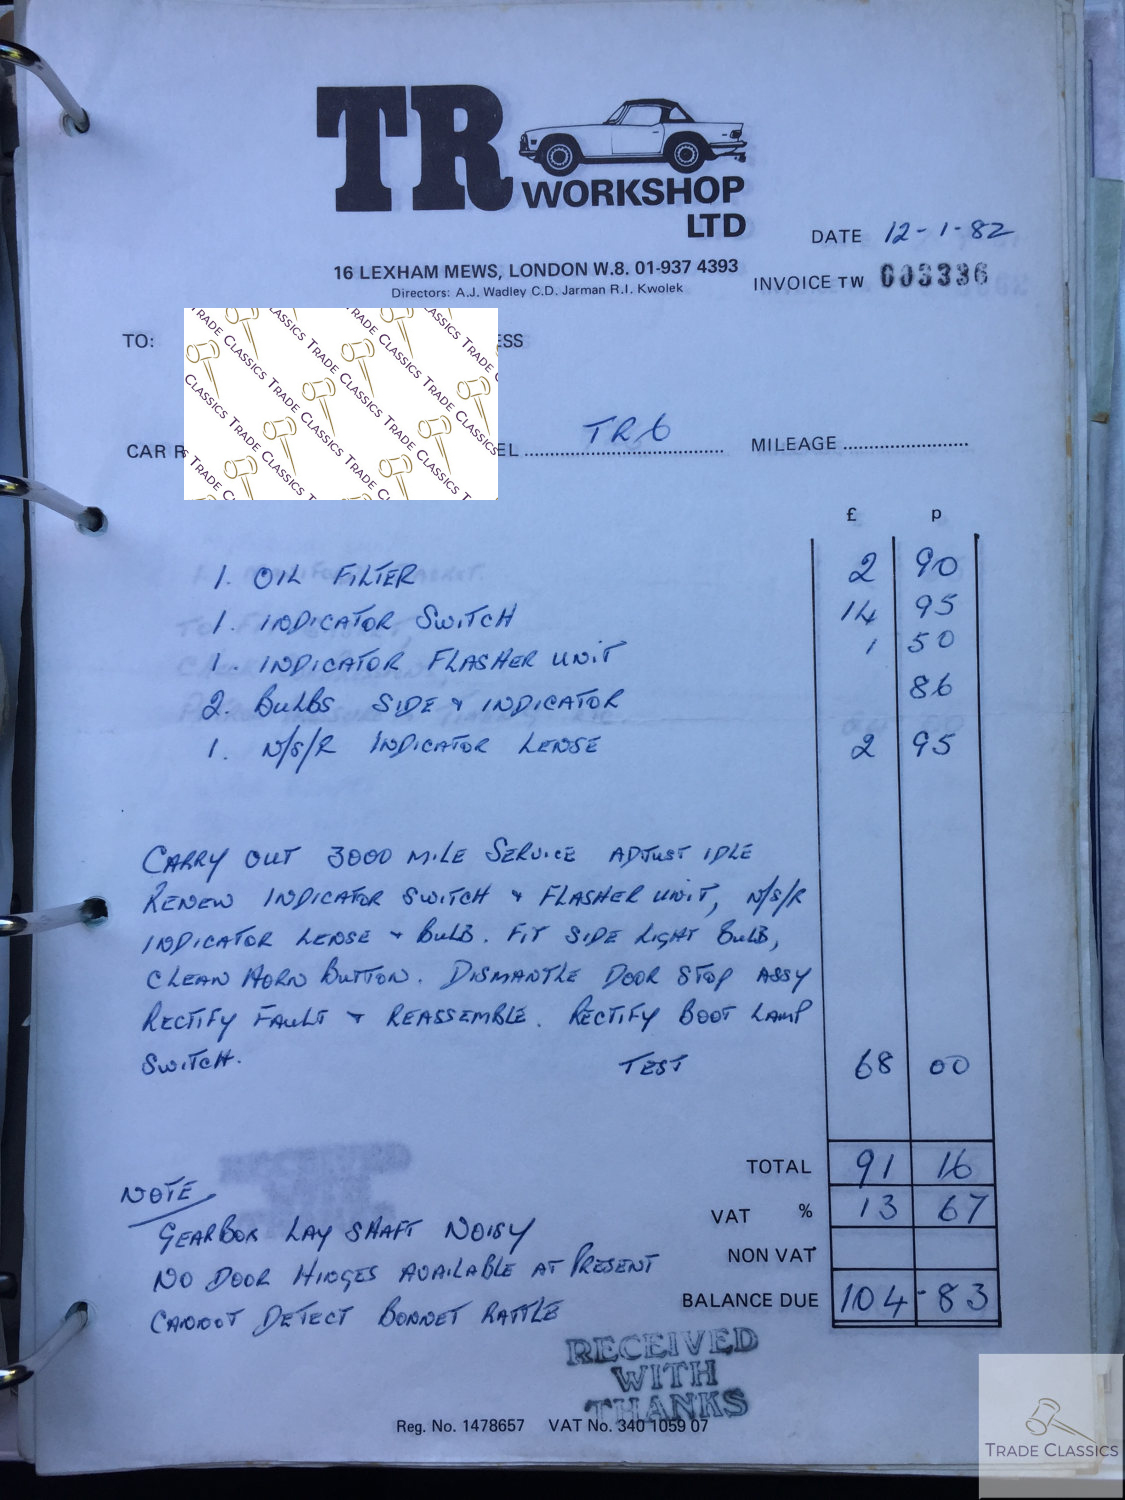 TR
WORKSHOP
LTD
16 LEXHAM MEWS, LONDON W.8. 01-937 4393
Directors: A.J. Wadley C.D. Jarman R.I. Kwolek
DATE 12-1-82
INVOICE TW 003336
TO: ESS
CAR R EL TR6 MILEAGE
TRADE CLASSICS TRADE CLASSICS TRADE CLASSICS
£ p
1. OIL FILTER 2 90
1. INDICATOR SWITCH 14 95
1. INDICATOR FLASHER UNIT 1 50
2. BULBS SIDE & INDICATOR 86
1. N/S/R INDICATOR LENSE 2 95
CARRY OUT 3000 MILE SERVICE ADJUST IDLE
RENEW INDICATOR SWITCH & FLASHER UNIT, N/S/R
INDICATOR LENSE & BULB. FIT SIDE LIGHT BULB,
CLEAN HORN BUTTON. DISMANTLE DOOR STOP ASSY
RECTIFY FAULT & REASSEMBLE. RECTIFY BOOT LAMP
SWITCH. TEST 68 00
TOTAL 91 16
VAT % 13 67
NON VAT
BALANCE DUE 104-83
NOTE
GEARBOX LAY SHAFT NOISY
NO DOOR HINGES AVAILABLE AT PRESENT
CANNOT DETECT BONNET RATTLE
RECEIVED
WITH
THANKS
Reg. No. 1478657 VAT No. 340 1059 07
TRADE CLASSICS